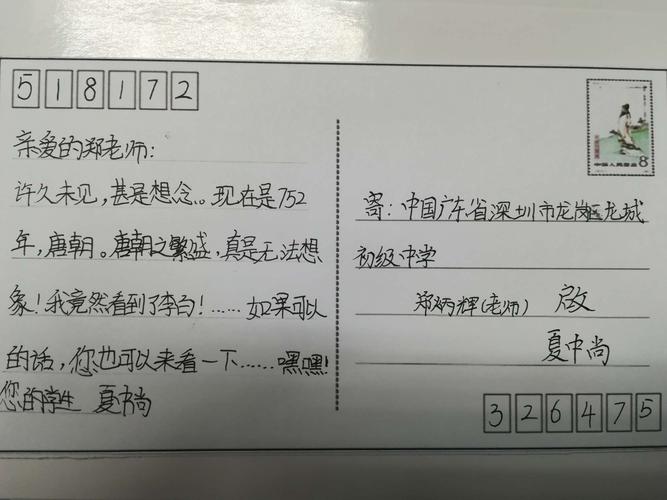 518172
亲爱的郑老师：
许久未见，甚是想念。现在是752
年，唐朝。唐朝之繁盛，真是无法想
象！我竟然看到了李白！……如果可以
的话，您也可以来看一下……嘿嘿！
您的学生 夏中尚
8
中国人民邮政
寄：中国广东省深圳市龙岗区龙城
初级中学
郑炳辉(老师) 启
夏中尚
326475